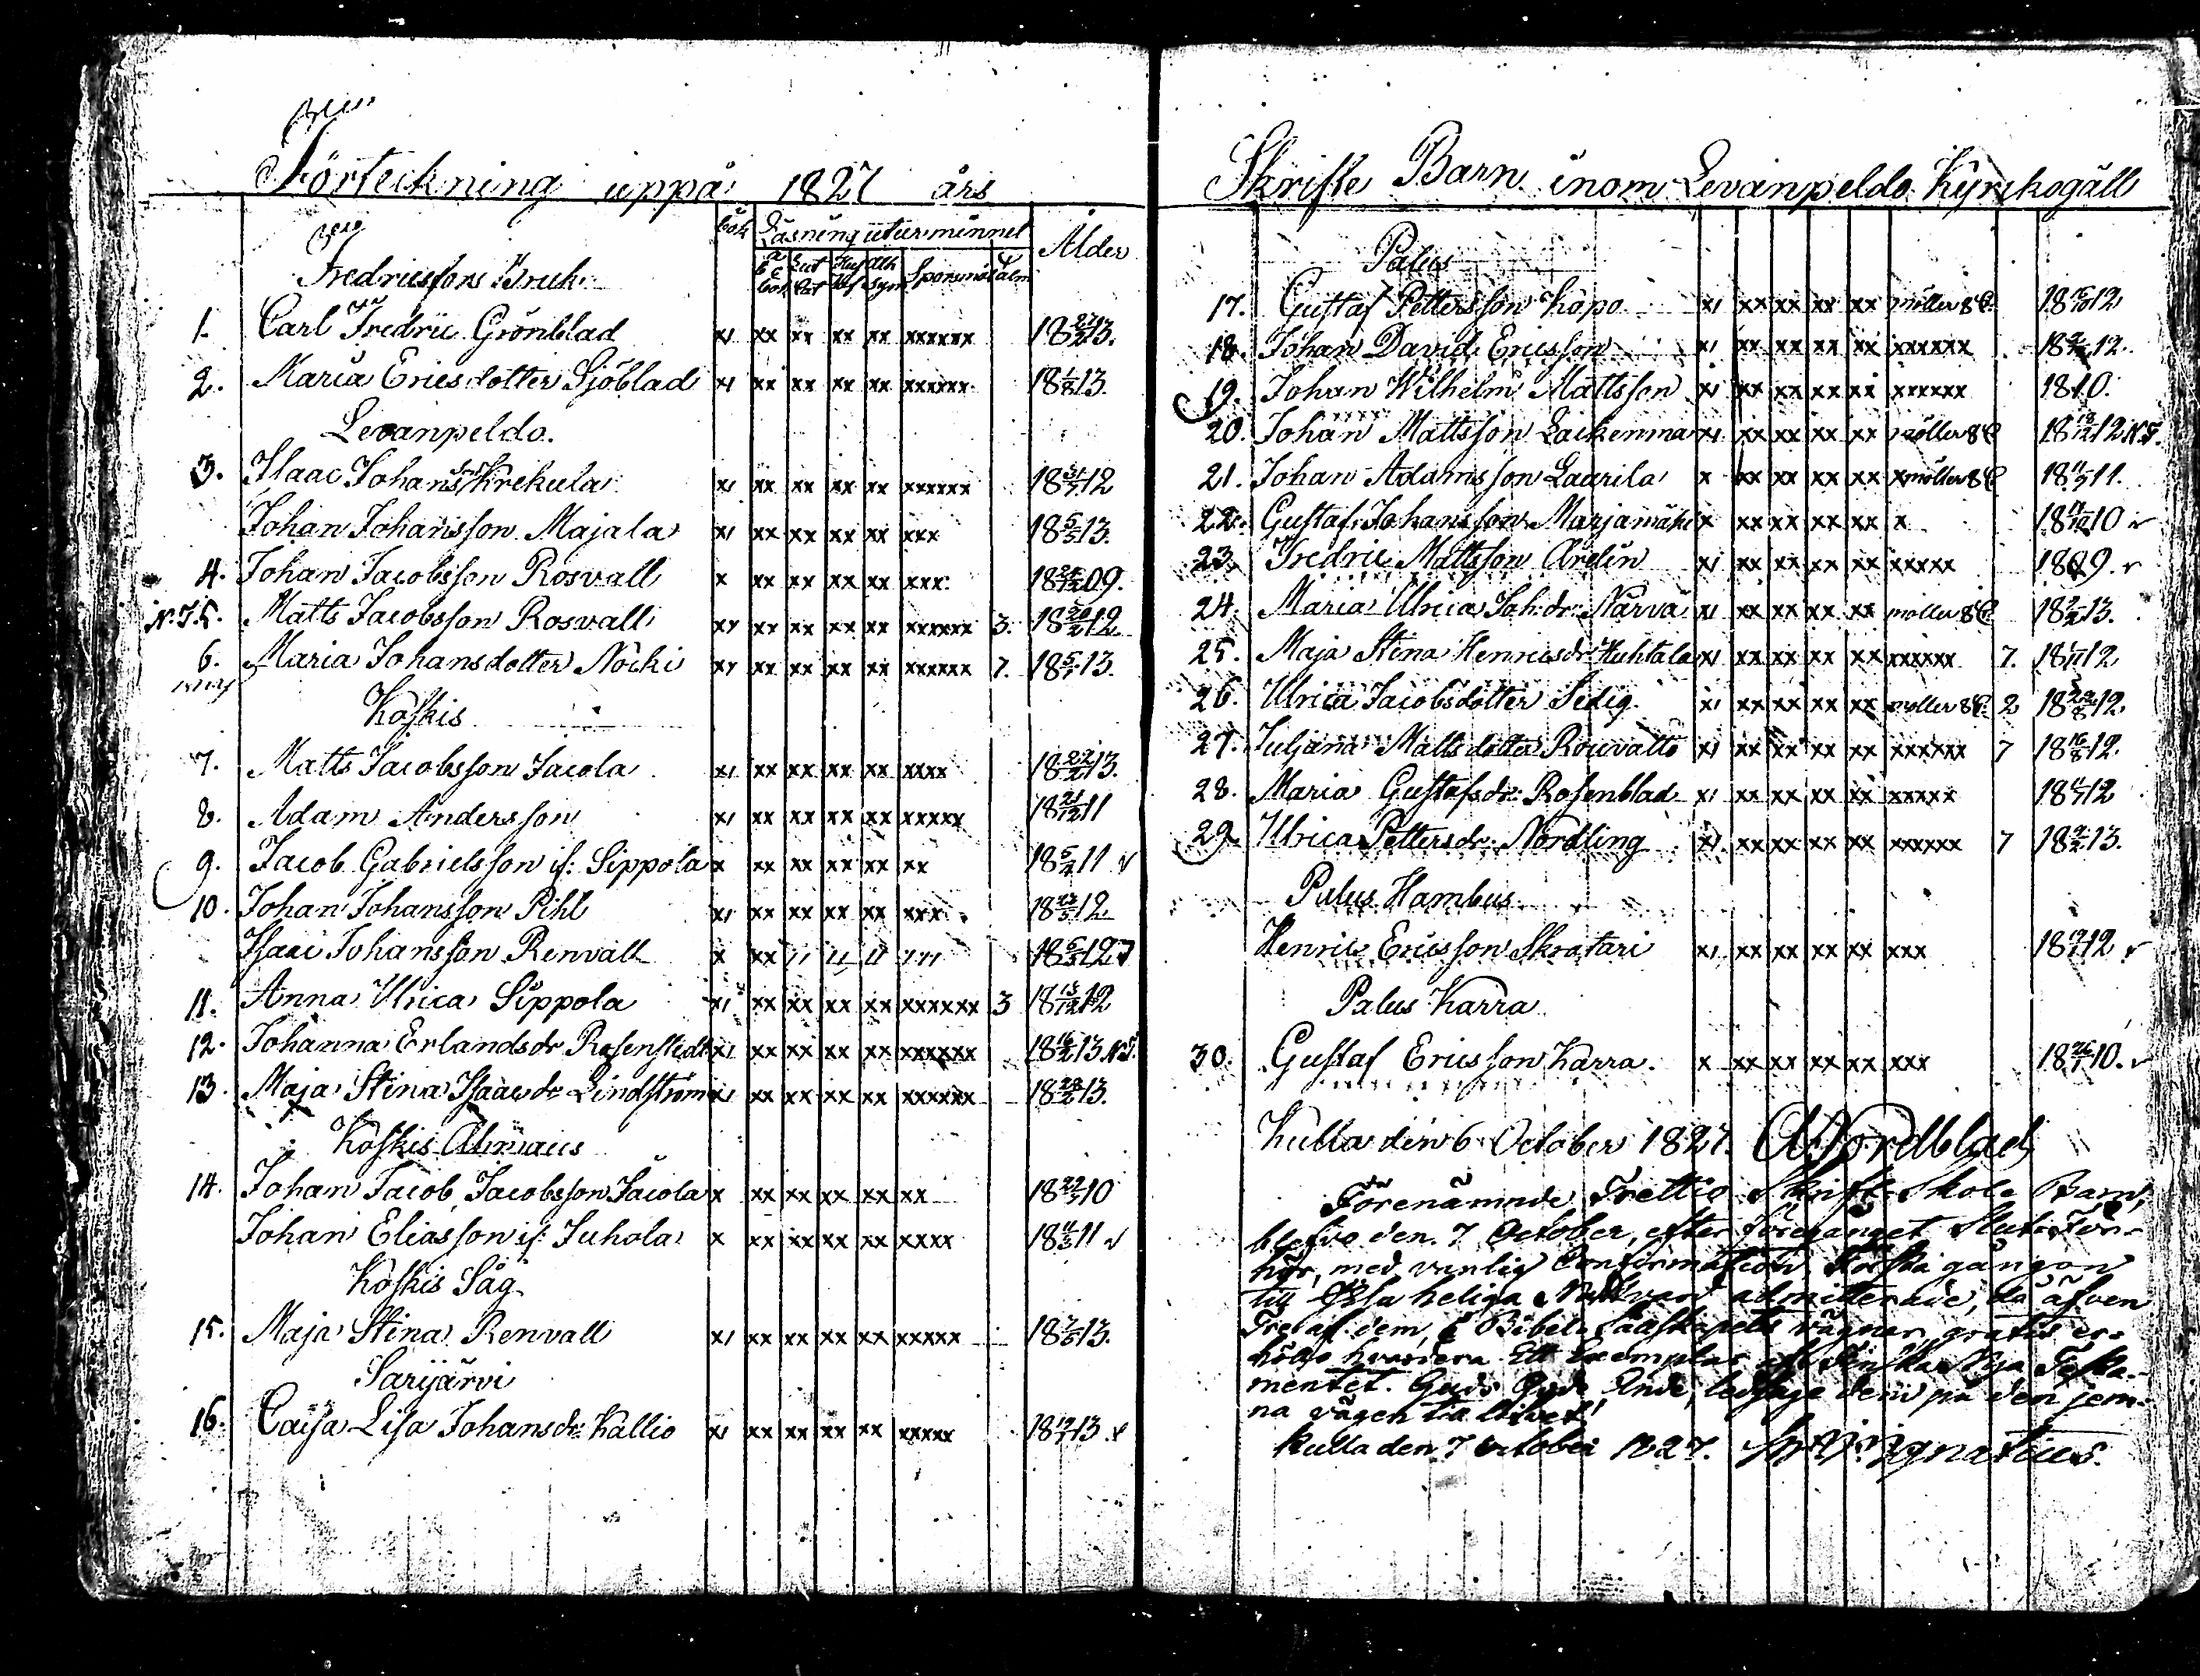 Förteckning uppå 1827 års
bok Läsning utur minnet Ålder
a b c bok Lut Cat Husf Ath Sym Sporsmål
Fredricsfors Bruk
1. Carl Fredric Grönblad x1 xx xx xx xx xxxxxx 18 27/2 13.
2. Maria Ericsdotter Sjöblad x1 xx xx xx xx xxxxxx 18 1/2 13.
Levanpeldo.
3. Isaac Johansson Krekula x1 xx xx xx xx xxxxxx 18 31/7 12
Johan Johansson Majala x1 xx xx xx xx xxx 18 5/5 13.
4. Johan Jacobsson Rosvall x xx xx xx xx xxx 18 09.
N.T. 5. Matts Jacobsson Rosvall xx xx xx xx xxxxxx 3. 18 12
6. Maria Johansdotter Nöcki xx xx xx xx xxxxxx 7. 18 13.
Koskis
7. Matts Jacobsson Jacola x1 xx xx xx xx xxxx 18 22/2 13.
8. Adam Andersson x1 xx xx xx xx xxxxx 18 21/12 11
9. Jacob Gabrielsson if: Sippola x xx xx xx xx xx 18 5/2 11 v
10. Johan Johansson Pihl x1 xx xx xx xx xxx 18 12
Isaac Johansson Renvall x xx 11 11 11 111 18 12
11. Anna Ulrica Sippola x1 xx xx xx xx xxxxxx 3 18 13/12 12
12. Johanna Erlandsdr Rosenstedt x1 xx xx xx xx xxxxxx 18 16/2 13 N.T.
13. Maja Stina Isaacsdr Lindström x1 xx xx xx xx xxxxxx 18 28/2 13.
Koskis
14. Johan Jacob Jacobsson Jacola x xx xx xx xx xx 18 22/5 10
Johan Eliasson if: Juhola x xx xx xx xx xxxx 18 11 v
Koskis Såg
15. Maja Stina Renvall x1 xx xx xx xx xxxxx 18 13.
Sarijärvi
16. Caisa Lisa Johansdr Kallio x1 xx xx xx xx xxxxx 18 12/7 13 v
Skrifte Barn inom Levanpeldo Kyrkogäll
Palus
17. Gustaf Pettersson Kopo x1 xx xx xx xx möller 8 C. 18 15/10 12
18. Johan David Ericsson x1 xx xx xx xx xxxxxx 18 12.
19. Johan Wilhelm Mattsson x1 xx xx xx xx xxxxxx 1810.
20. Johan Mattsson x1 xx xx xx xx möller 8 C 18 13/12 12 N.T.
21. Johan Adamsson Laarila x xx xx xx xx x möller 8 C 18 11.
22. Gustaf Johansson Marjamäki x xx xx xx xx x 18 10 v
23. Fredric Mattsson Arelin x1 xx xx xx xx xxxxx 1809. v
24. Maria Ulrica Joh: dr: Narva x1 xx xx xx xx möller 8 C. 18 13.
25. Maja Stina Henricsdr: Huhtala x1 xx xx xx xx xxxxxx 7. 18 12
26. Ulrica Jacobsdotter Sedig x1 xx xx xx xx möller 8 C. 2 18 12.
27. Juljana Mattsdotter x1 xx xx xx xx xxxxxx 7 18 16/8 12.
28. Maria Gustafsdr: Rosenblad x1 xx xx xx xx xxxxx 18 12
29. Ulrica Pettersdr Nordling x1 xx xx xx xx xxxxxx 7 18 13.
Palus Hambus
Henric Ericsson Skratari x1 xx xx xx xx xxx 18 12 v
Palus Karra
30. Gustaf Ericsson Karra. x xx xx xx xx xxx 18 26/7 10. v
Kulla den 6 October 1827. Nordblad
Förenämnde Trettio Skrift-Skole Barn,
blefvo den 7 October, efter föregånget Slut-För-
hör, med vanlig Confirmation, första gången
till heliga Nattvard admitterade, då äfven
Tre af dem, å Bibel-Sällskapets vägnar, gratis er-
höllo hvardera Ett Exemplar af Finska Nya Testa-
mentet. Guds Gode Ande, ledsage dem på den jem-
na vägen till lifvet!
Kulla den 7 October 1827. Ignatius.